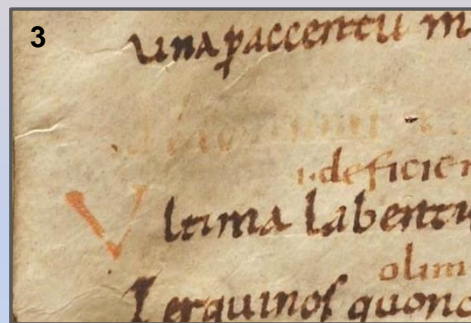 3
una paccentu
i.deficien
Vltima labentu
olim
Terquinoſ quon